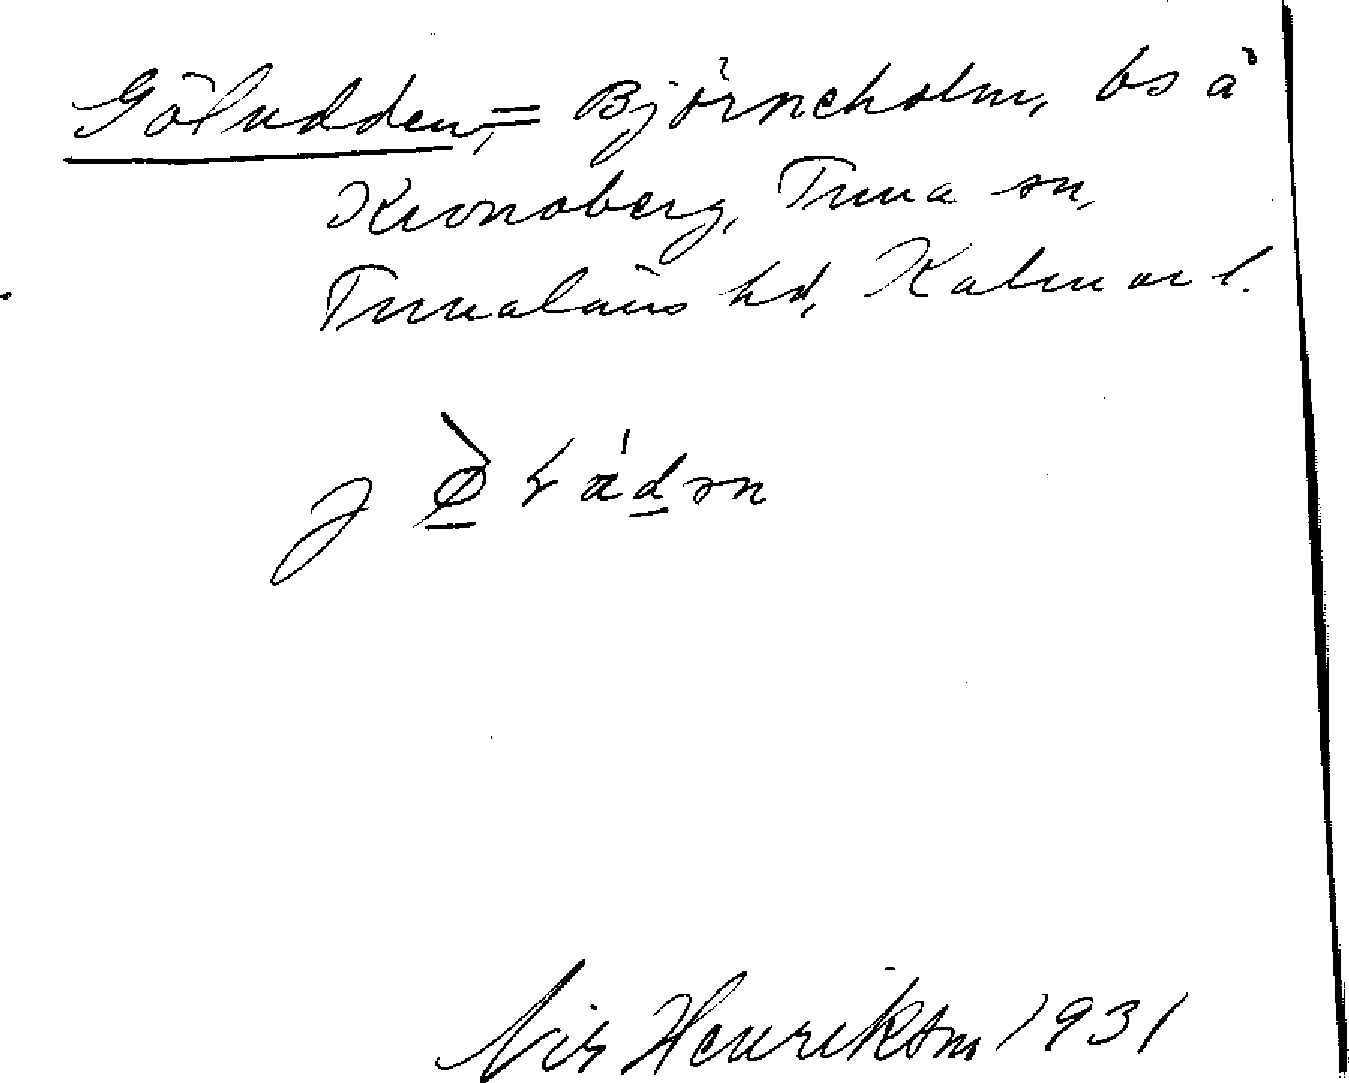 Göludden, = Björneholm, bs å
Kronoberg, Tuna sn,
Tunaläns hd, Kalmar l.
Nils Henrikson 1931